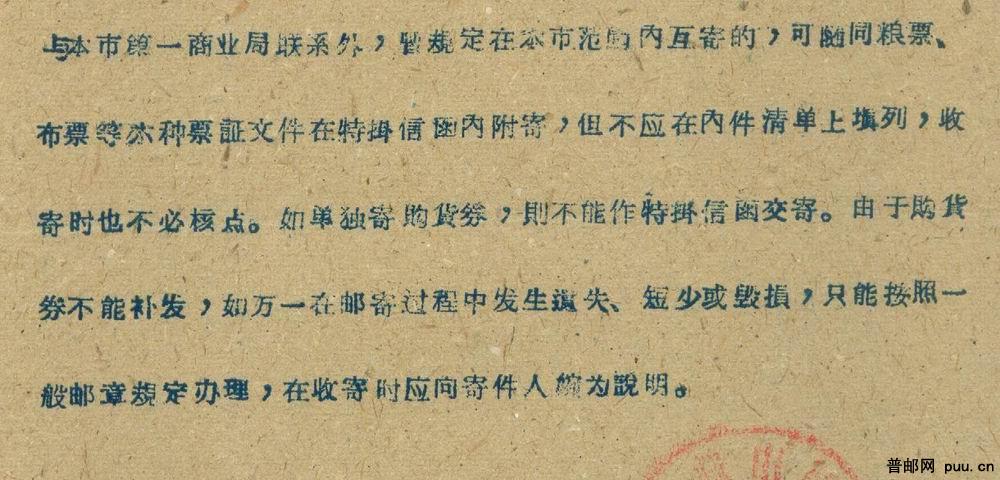 与本市第一商业局联系外，暂規定在本市范围內互寄的，可随同粮票、
布票等各种票証文件在特掛信函內附寄，但不应在內件清单上填列，收
寄时也不必核点。如单独寄購货券，則不能作特掛信函交寄。由于購货
券不能补发，如万一在邮寄过程中发生遺失、短少或毁損，只能按照一
般邮章規定办理，在收寄时应向寄件人婉为說明。
普邮网 puu.cn